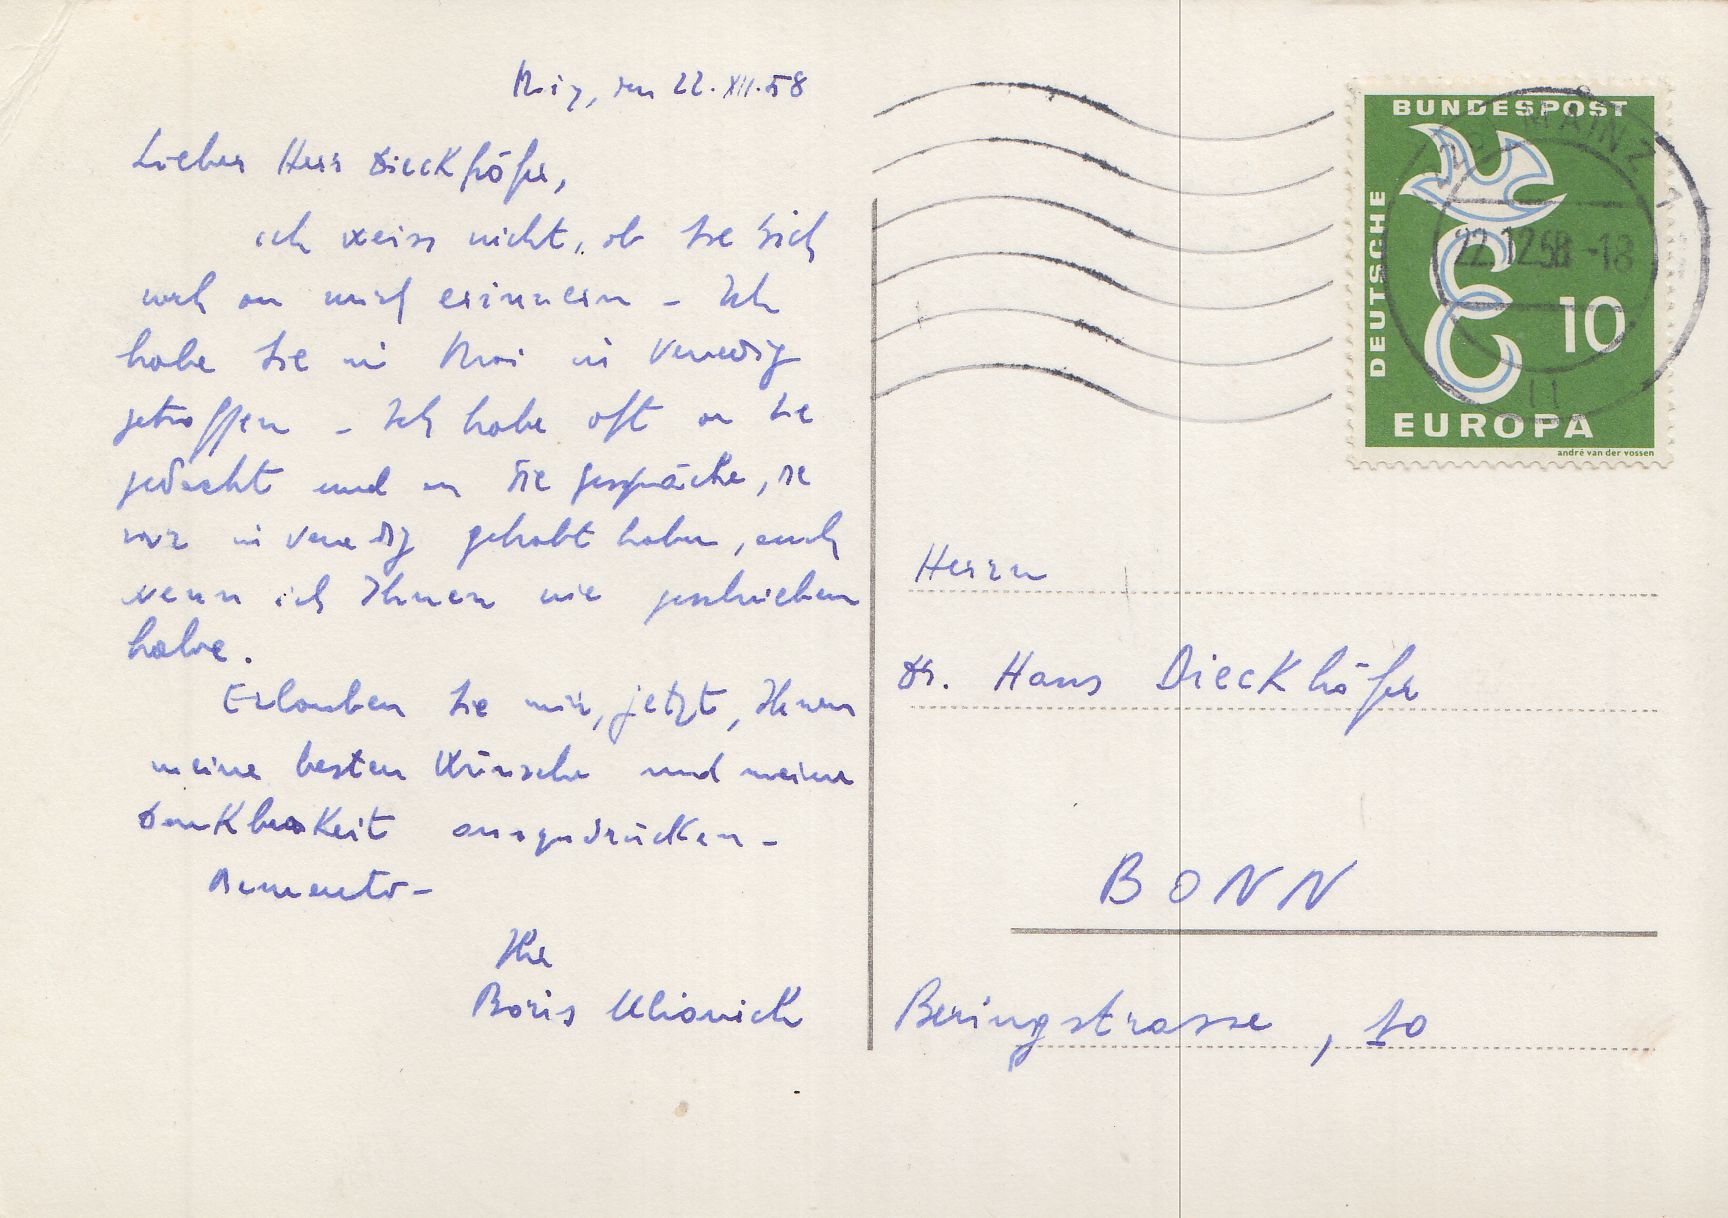 den 22.XII.58
Lieber Herr Dieckhöfer,
ich weiss nicht, ob Sie Sich
noch an mich erinnern - Ich
habe Sie in Mai in Venedig
getroffen - Ich habe oft an Sie
gedacht und an die Gespräche, die
wir in Venedig gehabt haben, auch
wenn ich Ihnen nie geschrieben
habe.
Erlauben Sie mir, jetzt, Ihnen
meine besten Wünsche und meine
Dankbarkeit auszudrücken -
Ihr
Boris
DEUTSCHE
BUNDESPOST
10
EUROPA
andré van der vossen
MAINZ 1
22.12.58-18
Herrn
Dr. Hans Dieckhöfer
BONN
Beringstrasse, 10